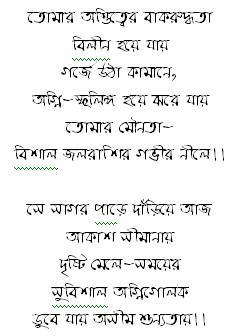 তোমার অস্তিত্বের বাকরুদ্ধতা
বিলীন হয়ে যায়
গর্জে উঠা কামানে,
অগ্নি-স্ফুলিঙ্গ হয়ে ঝরে যায়
তোমার মৌনতা-
বিশাল জলরাশির গভীর নীলে।।
সে সাগর পাড়ে দাঁড়িয়ে আজ
আকাশ সীমানায়
দৃষ্টি মেলে-সময়ের
সুবিশাল অগ্নিগোলক
ডুবে যায় অসীম শুন্যতায়।।